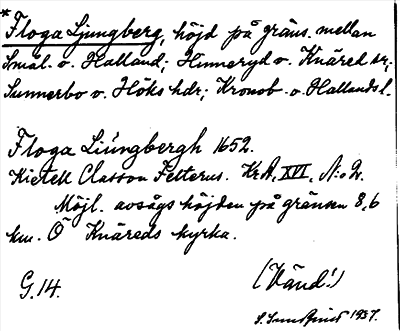 * Floga Ljungberg, höjd på gräns. mellan
Smål. o. Halland; Hinneryd o. Knäred sr;
Sunnerbo o. Höks hdr; Kronob. o. Hallands l.
Floga Liungbergh 1652.
Kietell Classon Felterus. KrA, XVI, N:o 2.
Möjl. avsågs höjden på gränsen 8,6
km. Ö Knäreds kyrka.
G.14.
(Vänd!)
S. Sundquist 1937.